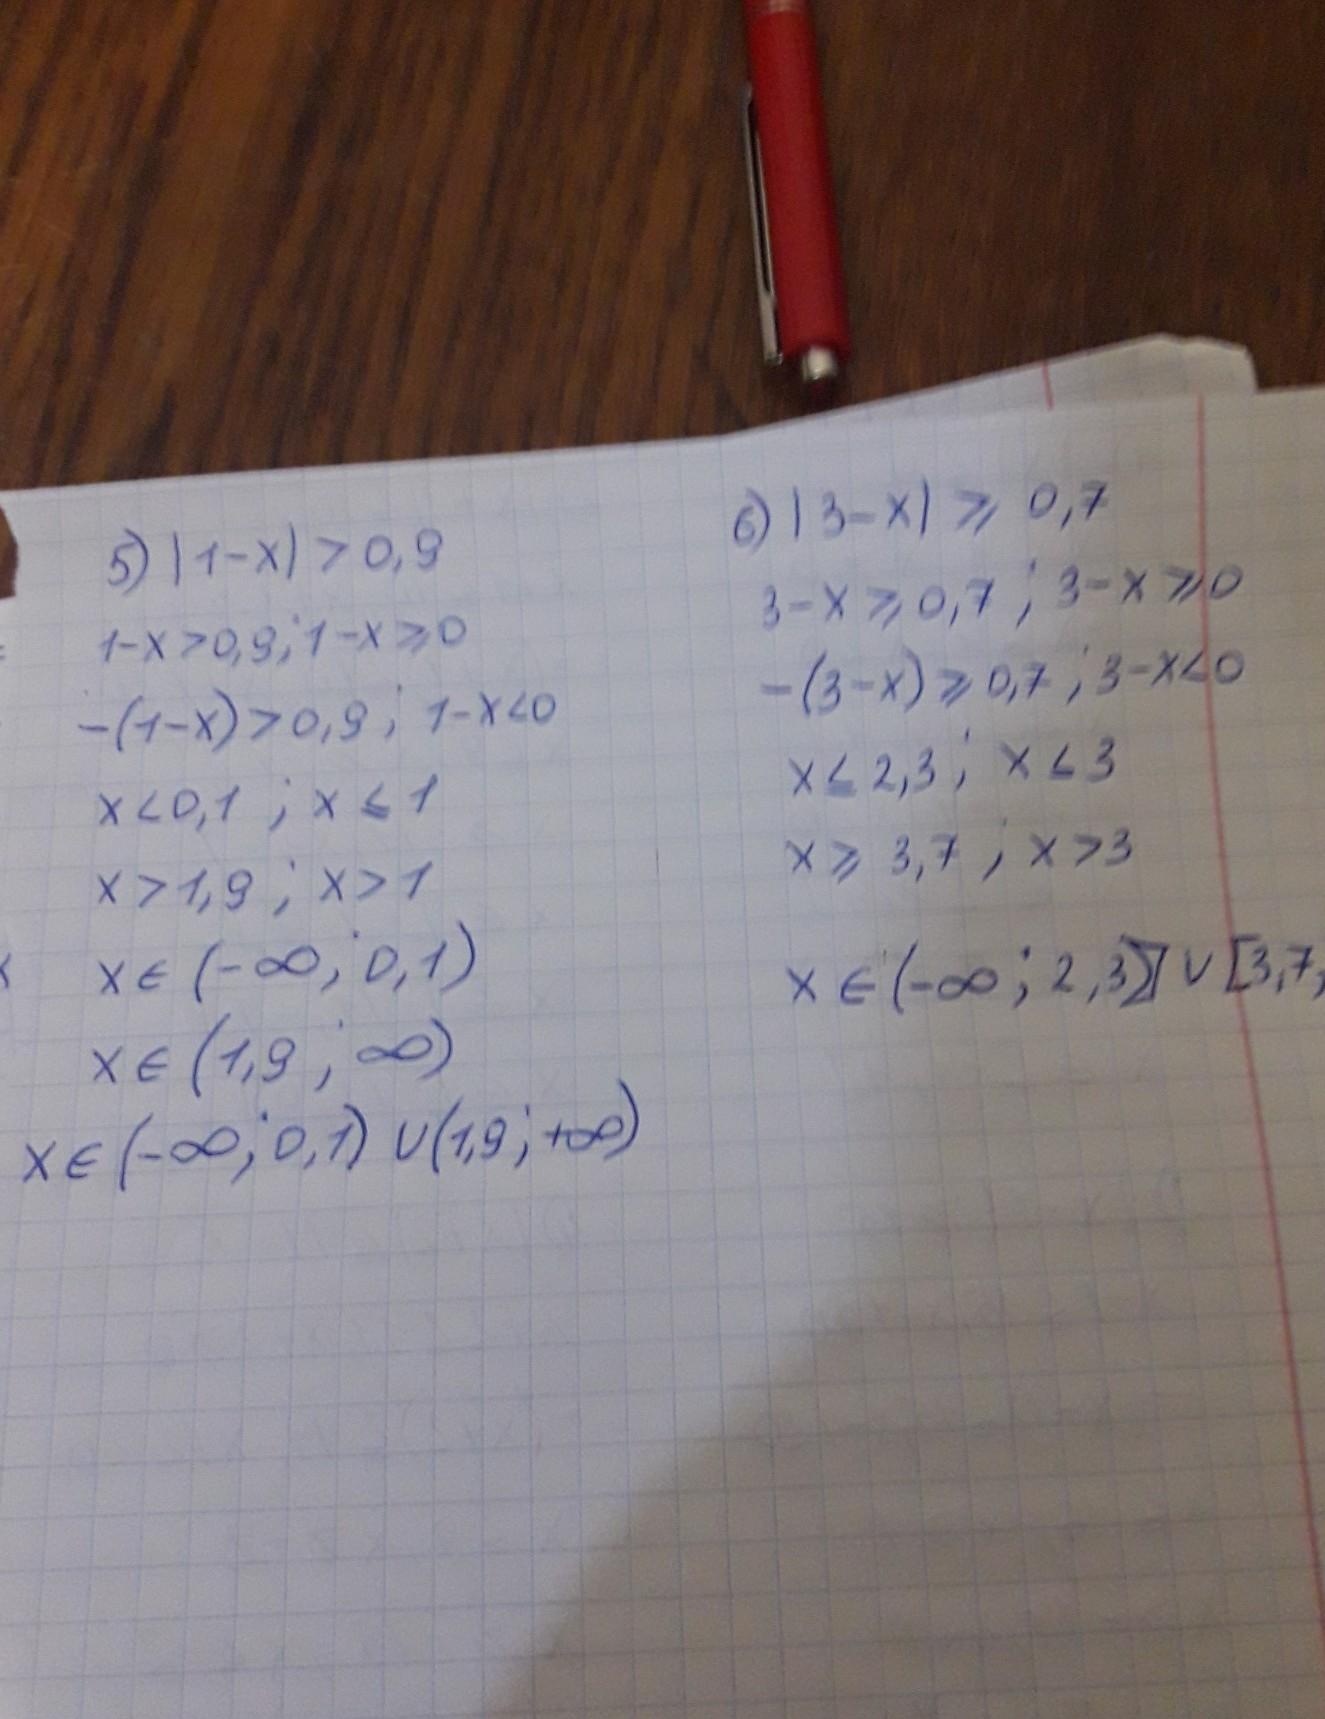 5) |1-x| > 0,9
1-x>0,9; 1-x⩾0
-(1-x)>0,9; 1-x<0
x<0,1 ; x⩽1
x>1,9 ; x>1
x∈(-∞; 0,1)
x∈(1,9 ; ∞)
x∈(-∞; 0,1) ∪ (1,9; +∞)
6) |3-x| ⩾ 0,7
3-x⩾0,7 ; 3-x⩾0
-(3-x)⩾0,7 ; 3-x<0
x⩽2,3 ; x⩽3
x⩾3,7 ; x>3
x∈(-∞; 2,3] ∪ [3,7;